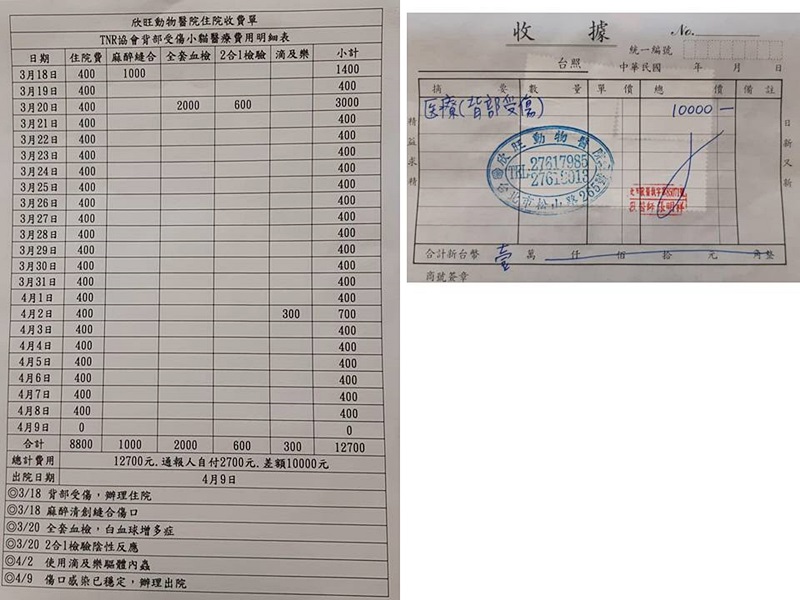 欣旺動物醫院住院收費單
TNR協會背部受傷小貓醫療費用明細表
日期 住院費 麻醉縫合 全套血檢 2合1檢驗 滴及樂 小計
3月18日 400 1000 1400
3月19日 400 400
3月20日 400 2000 600 3000
3月21日 400 400
3月22日 400 400
3月23日 400 400
3月24日 400 400
3月25日 400 400
3月26日 400 400
3月27日 400 400
3月28日 400 400
3月29日 400 400
3月30日 400 400
3月31日 400 400
4月1日 400 400
4月2日 400 300 700
4月3日 400 400
4月4日 400 400
4月5日 400 400
4月6日 400 400
4月7日 400 400
4月8日 400 400
4月9日 0 0
合計 8800 1000 2000 600 300 12700
總計費用 12700元.通報人自付2700元.差額10000元
出院日期 4月9日
◎3/18 背部受傷，辦理住院
◎3/18 麻醉清創縫合傷口
◎3/20 全套血檢，白血球增多症
◎3/20 2合1檢驗陰性反應
◎4/2 使用滴及樂驅體內蟲
◎4/9 傷口感染已穩定，辦理出院
收據 No.
統一編號
台照 中華民國 年 月 日
摘要 數量 單價 總價 備註
医療(背部受傷) 10000—
精益求精
日新又新
欣旺動物醫院
TEL:27617985
台北市松山路265號
合計新台幣 壹萬 仟 佰 拾 元 角整
商號簽章